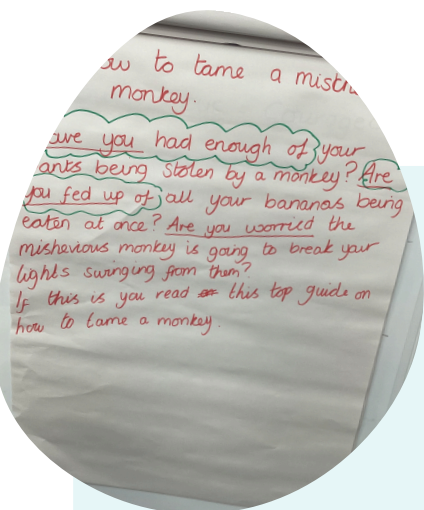 ow to tame a
monkey.
ave you had enough of your
ants being stolen by a monkey? Are
you fed up of all your bananas being
eaten at once? Are you worried the
mishevious monkey is going to break your
lights swinging from them?
If this is you read this top guide on
how to tame a monkey.